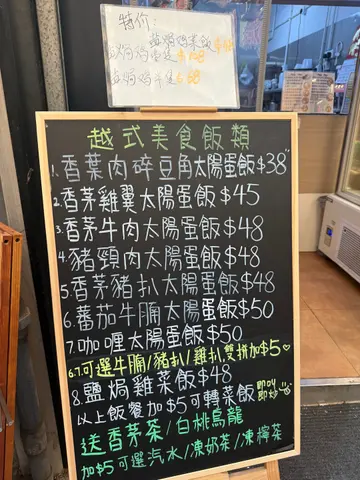 特价:
鹽焗雞菜飯$48
越式美食飯類
1.香葉肉碎豆角太陽蛋飯$38
2.香茅雞翼太陽蛋飯$45
3.香茅牛肉太陽蛋飯$48
4.豬頸肉太陽蛋飯$48
5.香茅豬扒太陽蛋飯$48
6.蕃茄牛腩太陽蛋飯$50
7.咖喱太陽蛋飯$50
6.7.可選牛腩/豬扒/雞扒雙拼加$5
8.鹽焗雞菜飯$48
以上飯餐加$5可轉菜飯 即叫即炒
送香茅茶/白桃烏龍
加$5可選汽水/凍奶茶/凍檸茶